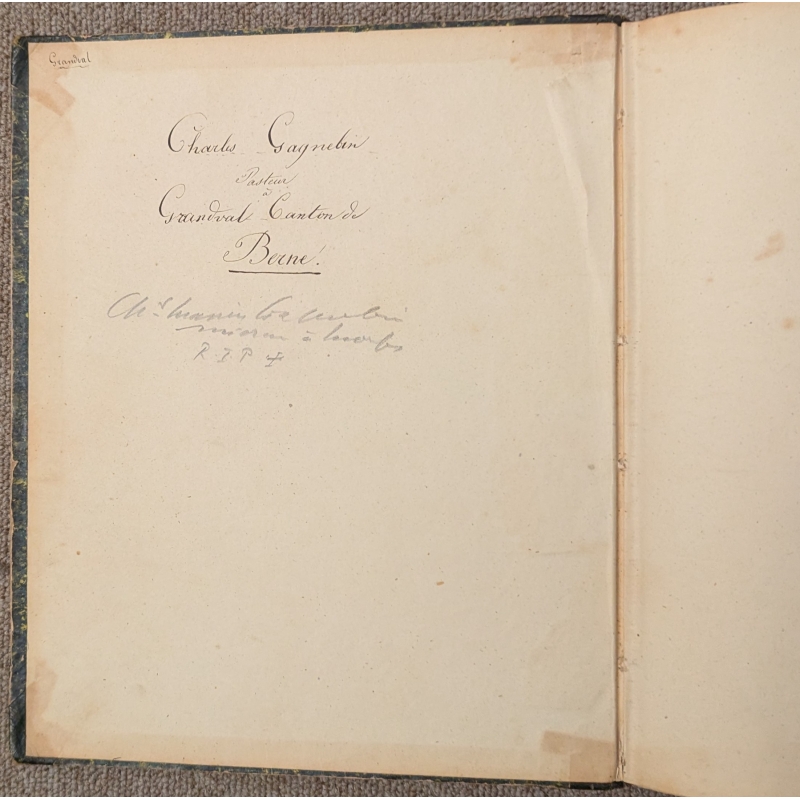 Grandval
Charles Gagnebin
Pasteur
à
Grandval Canton de
Berne!
Gagnebin
à
R. I. P